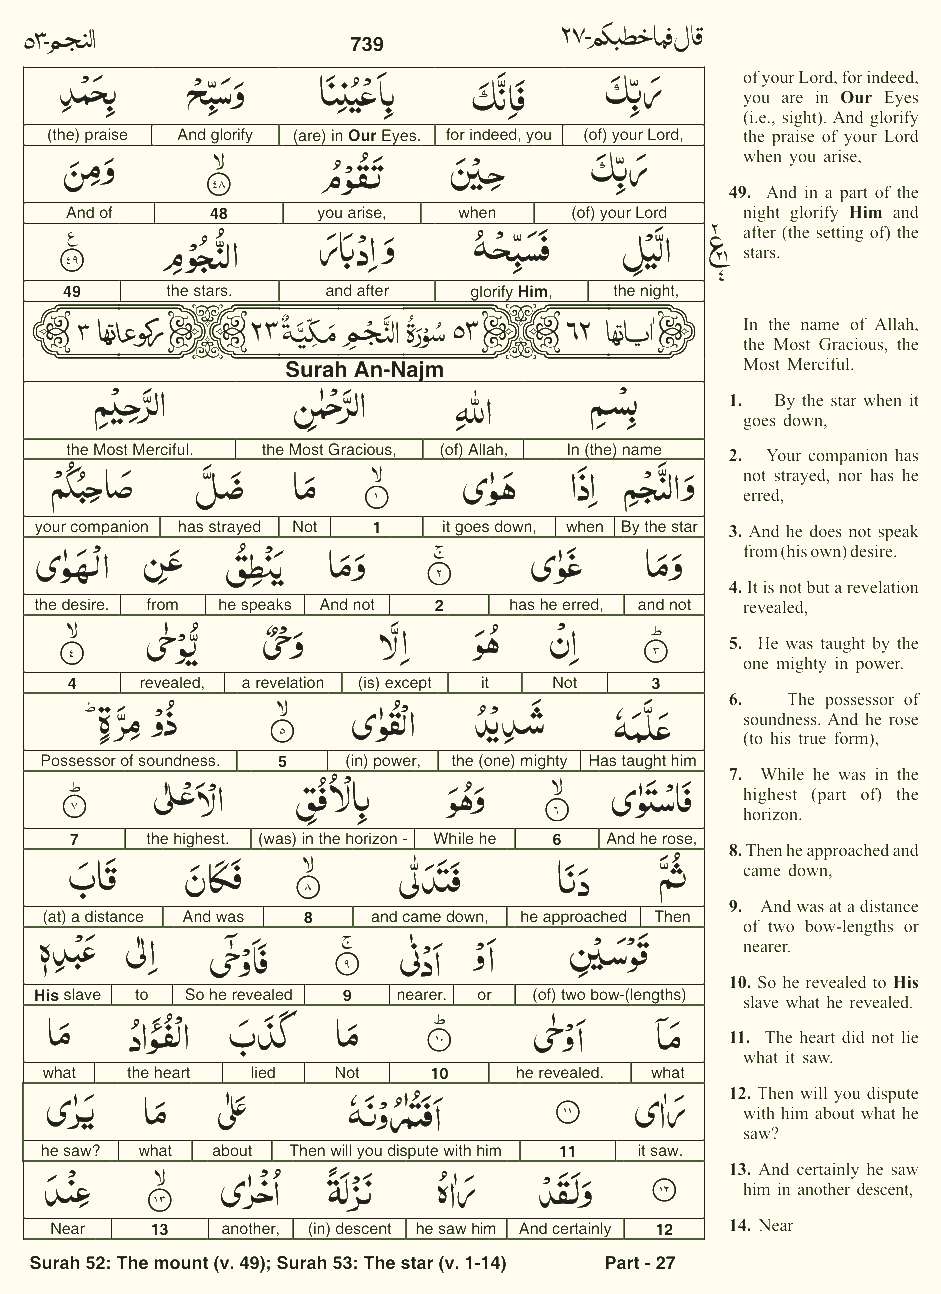 قال فما خطبكم-٢٧ 739 النجم-٥٣
رَبِّكَ فَاِنَّكَ بِاَعْيُنِنَا وَسَبِّحْ بِحَمْدِ
(of) your Lord, for indeed, you (are) in Our Eyes. And glorify (the) praise
رَبِّكَ حِيْنَ تَقُوْمُ ۙ ٤٨ وَمِنَ
(of) your Lord when you arise, 48 And of
الَّيْلِ فَسَبِّحْهُ وَاِدْبَارَ النُّجُوْمِ ٤٩ ع
the night, glorify Him, and after the stars. 49
٢ ع ٢١ ٤
اٰیاتها ٦٢ ٥٣ سُوْرَةُ النَّجْمِ مَكِّيَّةٌ ٢٣ ركوعاتها ٣
Surah An-Najm
بِسْمِ اللّٰهِ الرَّحْمٰنِ الرَّحِيْمِ
In (the) name (of) Allah, the Most Gracious, the Most Merciful.
وَالنَّجْمِ اِذَا هَوٰى ۙ ١ مَا ضَلَّ صَاحِبُكُمْ
By the star when it goes down, 1 Not has strayed your companion
وَمَا غَوٰى ۚ ٢ وَمَا يَنْطِقُ عَنِ الْهَوٰى
and not has he erred, 2 And not he speaks from the desire.
٣ ؕ اِنْ هُوَ اِلَّا وَحْيٌ يُّوْحٰى ۙ ٤
3 Not it (is) except a revelation revealed, 4
عَلَّمَهٗ شَدِيْدُ الْقُوٰى ۙ ٥ ذُوْ مِرَّةٍ ؕ
Has taught him the (one) mighty (in) power, 5 Possessor of soundness.
فَاسْتَوٰى ۙ ٦ وَهُوَ بِالْاُفُقِ الْاَعْلٰى ؕ ٧
And he rose, 6 While he (was) in the horizon - the highest. 7
ثُمَّ دَنَا فَتَدَلّٰى ۙ ٨ فَكَانَ قَابَ
Then he approached and came down, 8 And was (at) a distance
قَوْسَيْنِ اَوْ اَدْنٰى ۚ ٩ فَاَوْحٰٓى اِلٰى عَبْدِهٖ
(of) two bow-(lengths) or nearer. 9 So he revealed to His slave
مَآ اَوْحٰى ؕ ١٠ مَا كَذَبَ الْفُؤَادُ مَا
what he revealed. 10 Not lied the heart what
رَاٰى ١١ اَفَتُمٰرُوْنَهٗ عَلٰى مَا يَرٰى
it saw. 11 Then will you dispute with him about what he saw?
١٢ وَلَقَدْ رَاٰهُ نَزْلَةً اُخْرٰى ۙ ١٣ عِنْدَ
12 And certainly he saw him (in) descent another, 13 Near
of your Lord, for indeed,
you are in Our Eyes
(i.e., sight). And glorify
the praise of your Lord
when you arise,
49. And in a part of the
night glorify Him and
after (the setting of) the
stars.
In the name of Allah,
the Most Gracious, the
Most Merciful.
1. By the star when it
goes down,
2. Your companion has
not strayed, nor has he
erred,
3. And he does not speak
from (his own) desire.
4. It is not but a revelation
revealed,
5. He was taught by the
one mighty in power.
6. The possessor of
soundness. And he rose
(to his true form),
7. While he was in the
highest (part of) the
horizon.
8. Then he approached and
came down,
9. And was at a distance
of two bow-lengths or
nearer.
10. So he revealed to His
slave what he revealed.
11. The heart did not lie
what it saw.
12. Then will you dispute
with him about what he
saw?
13. And certainly he saw
him in another descent,
14. Near
Surah 52: The mount (v. 49); Surah 53: The star (v. 1-14) Part - 27